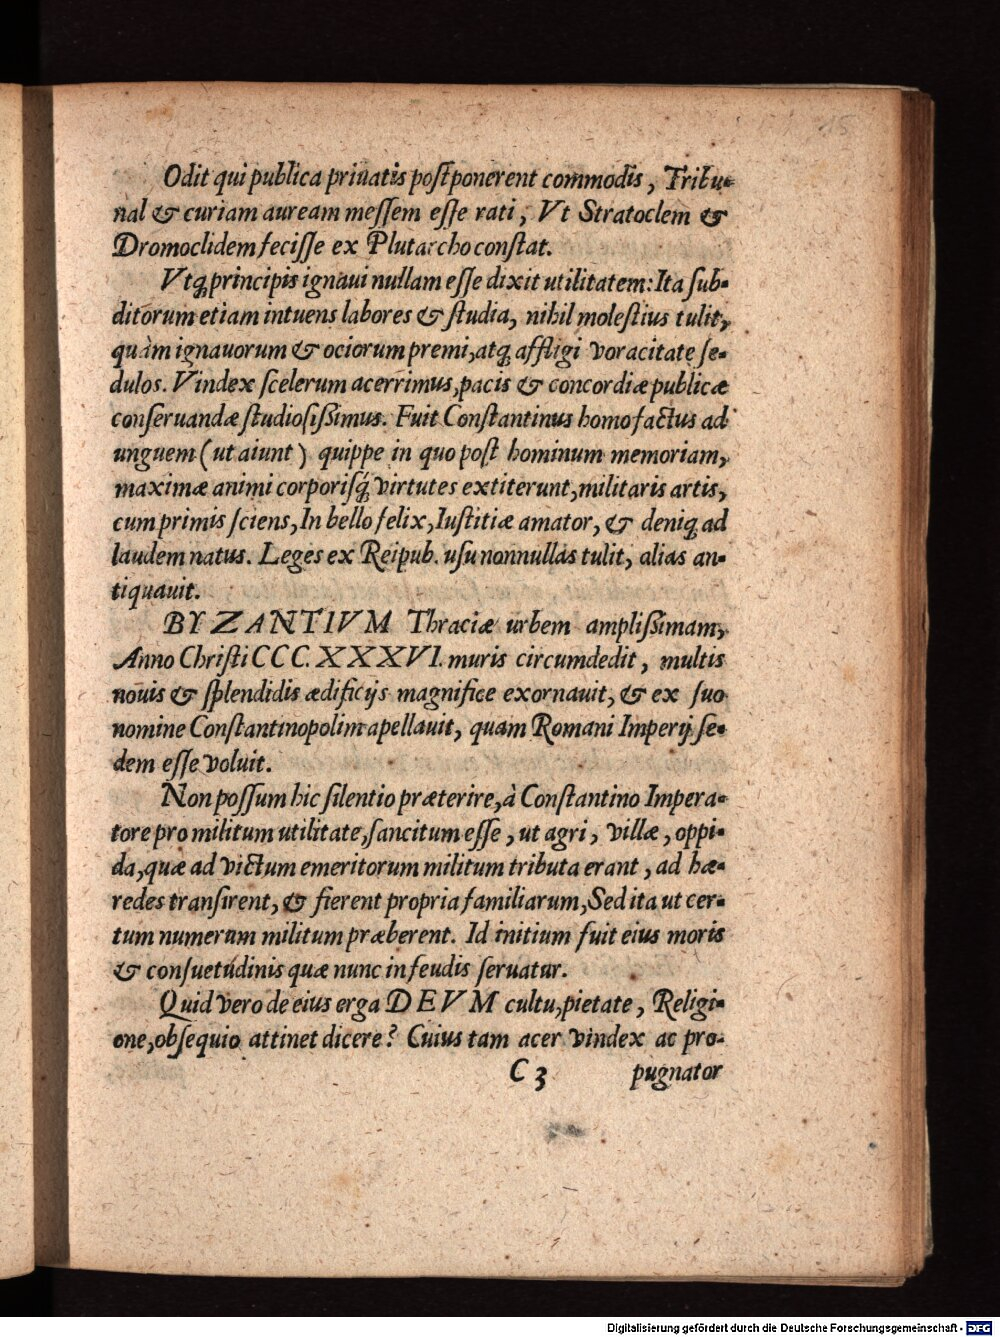 15
Odit qui publica priuatis postponerent commodis, Tribu-
nal & curiam auream messem esse rati, Vt Stratoclem &
Dromoclidem fecisse ex Plutarcho constat.
Vtq; principis ignaui nullam esse dixit utilitatem: Ita sub-
ditorum etiam intuens labores & studia, nihil molestius tulit,
quàm ignauorum & ociorum premi, atq; affligi voracitate se-
dulos. Vindex scelerum acerrimus, pacis & concordiæ publicæ
conseruandæ studiosissimus. Fuit Constantinus homo factus ad
unguem (ut aiunt) quippe in quo post hominum memoriam,
maximæ animi corporisq́; virtutes extiterunt, militaris artis,
cum primis sciens, In bello felix, Iustitiæ amator, & deniq; ad
laudem natus. Leges ex Reipub. usu nonnullas tulit, alias an-
tiquauit.
BYZANTIVM Thraciæ urbem amplissimam,
Anno Christi CCC. XXXVI. muris circumdedit, multis
nouis & splendidis ædificijs magnifice exornauit, & ex suo
nomine Constantinopolim apellauit, quam Romani Imperij se-
dem esse voluit.
Non possum hic silentio præterire, à Constantino Impera-
tore pro militum utilitate, sancitum esse, ut agri, villæ, oppi-
da, quæ ad victum emeritorum militum tributa erant, ad hæ-
redes transirent, & fierent propria familiarum, Sed ita ut cer-
tum numerum militum præberent. Id initium fuit eius moris
& consuetudinis quæ nunc in feudis seruatur.
Quid vero de eius erga DEVM cultu, pietate, Religi-
one, obsequio attinet dicere? Cuius tam acer vindex ac pro-
C 3 pugnator
Digitalisierung gefördert durch die Deutsche Forschungsgemeinschaft - DFG